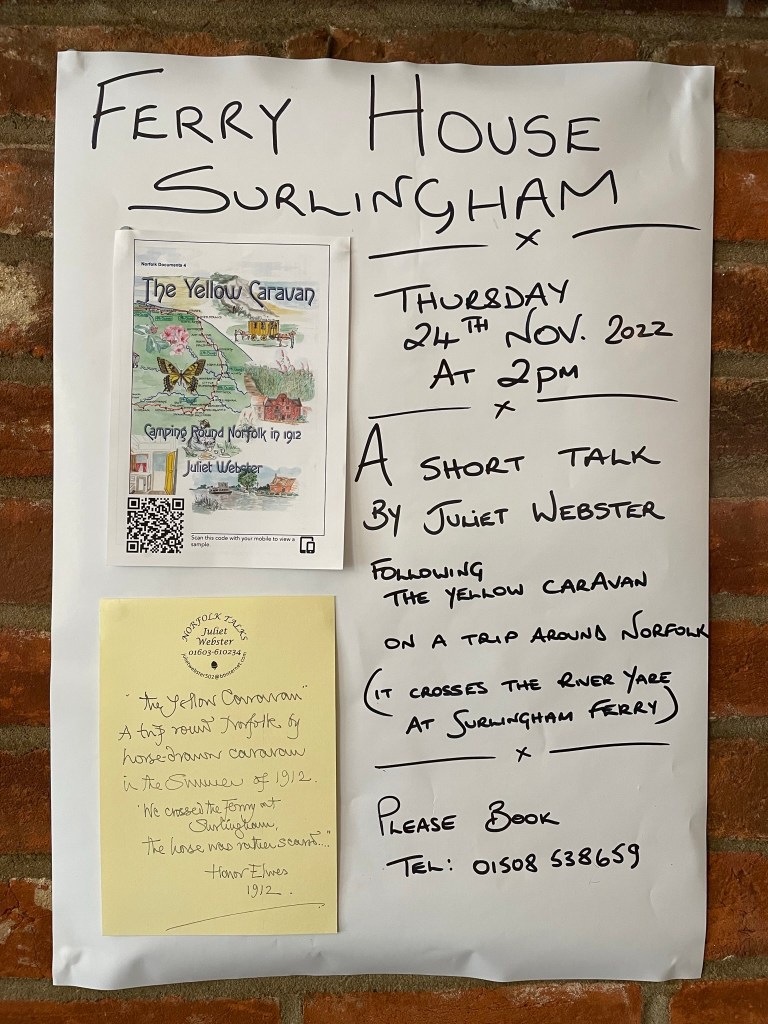 FERRY HOUSE
SURLINGHAM
x
Norfolk Documents 4
The Yellow Caravan
Camping Round Norfolk in 1912
Juliet Webster
Scan this code with your mobile to view a
sample
THURSDAY
24TH NOV. 2022
AT 2PM
x
A SHORT TALK
BY JULIET WEBSTER
FOLLOWING
THE YELLOW CARAVAN
ON A TRIP AROUND NORFOLK
(IT CROSSES THE RIVER YARE
AT SURLINGHAM FERRY)
x
PLEASE BOOK
TEL: 01508 538659
NORFOLK TALKS
Juliet
Webster
01603-610234
julietwebster502@btinternet.com
"The Yellow Caravan"
A trip round Norfolk by
horse-drawn caravan
in the Summer of 1912.
"We crossed the Ferry at
Surlingham,
the horse was rather scared...."
Honor Elwes
1912.